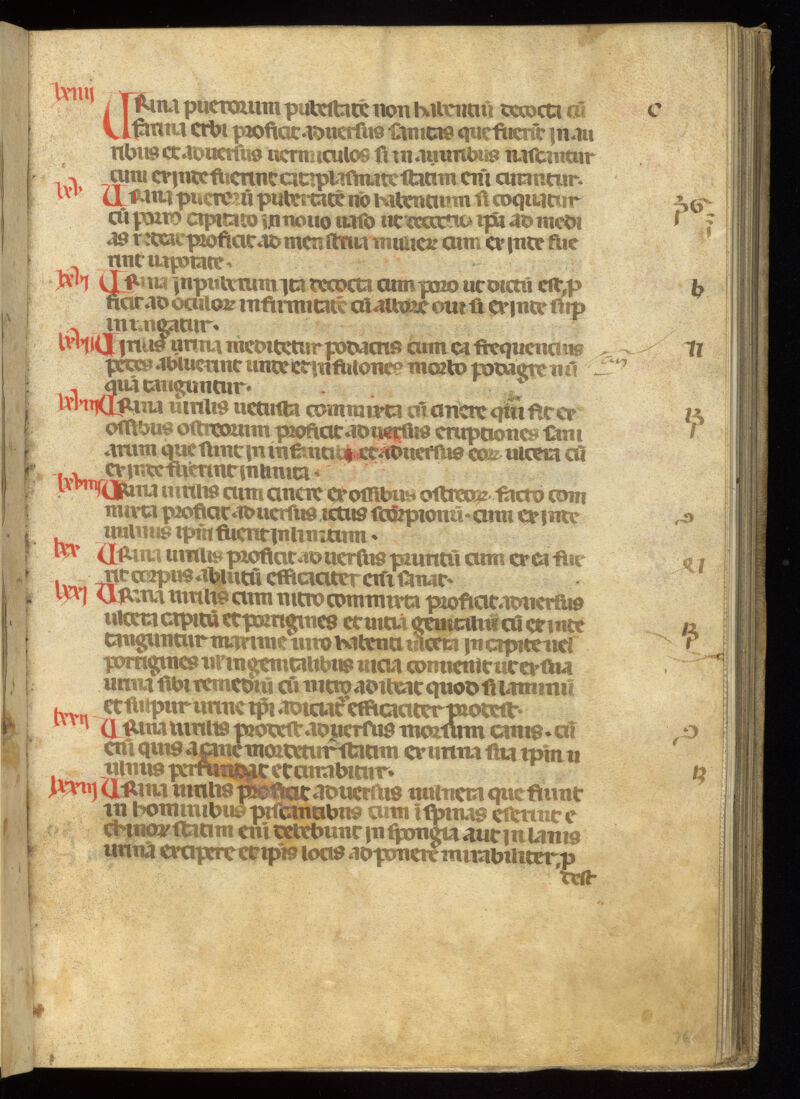 lxiiij URina puerorum pubeſtatē non habentiū decocta cū c
farina erbi proficit aduerſus ſanitas que fuerīt in au
ribus et aduerſus uermiculos ſi in auuribus naſcantur
cum ex inde fuerint cataplaſmate ſtatim eni curantur.
lxv URina puerorū pubertatē nō habentium ſi coquatur
cū porro capitato in nouo uaſo ut decoctio ipſa ad medi
as redeat proficit ad menſtrua mulierꝝ cum ex inde fue
rint uaporate.
lxvi URina inpuberum ita decocta cum poro ut dictū eſt, p b
ficit ad oculorꝝ infirmitatē cū albore oui ſi ex inde ſup
inungatur.
lxvij Uirilis urina meditetur podacris cum ea frequencius
pedes abluerint unde et in fulones morbo podagre nū
quā tanguntur.
lxviij URina uirilis uetuſta commixta cū cinere qui fit ex
oſſibus oſtreorum proficit aduerſus eruptiones ſani
arum que ſunt in infantib et aduerſus eorꝝ ulcera cū
ex inde fuerint inlinita.
lxviiij URina uirilis cum cinere ex oſſibus oſtreorꝝ facto com
mixta proficit aduerſus ictus ſcorpionū. cum ex inde
uulnus ipm fuerit inlinitum.
lxx URina uirilis proficit aduerſus pruritū cum ex ea fue
rit corpus ablutū efficaciter eni ſanat.
lxxi URina uirilis cum nitro commixta proficit aduerſus
ulcera capitū et porrigines et uicia genitaliū cū ex inde
tanguntur maxime uiro habenti ulcera in capite uel
porrigines ul in genitalibus uicia conuenit ut ex ſua
urina ſibi remediū cū nitro adibeat quod ſi laminū
et ſulpur urine ipi adiciat efficaciter prodeſt.
lxxii URina uirilis prodeſt aduerſus morſum canis. cū
eni quis a cane mordetur ſtatim ex urina ſua ipm u
ulnus perfundat et curabitur.
lxxiii URina uirilis proficit aduerſus uulnera que fiunt
in hominibus piſcantibus cum i ſpinas eſerint e
chinorꝝ ſtatim eni debebunt in ſpongia aut in lanis
urina excipere et ipis locis adponere mirabiliter, p
deſt
76